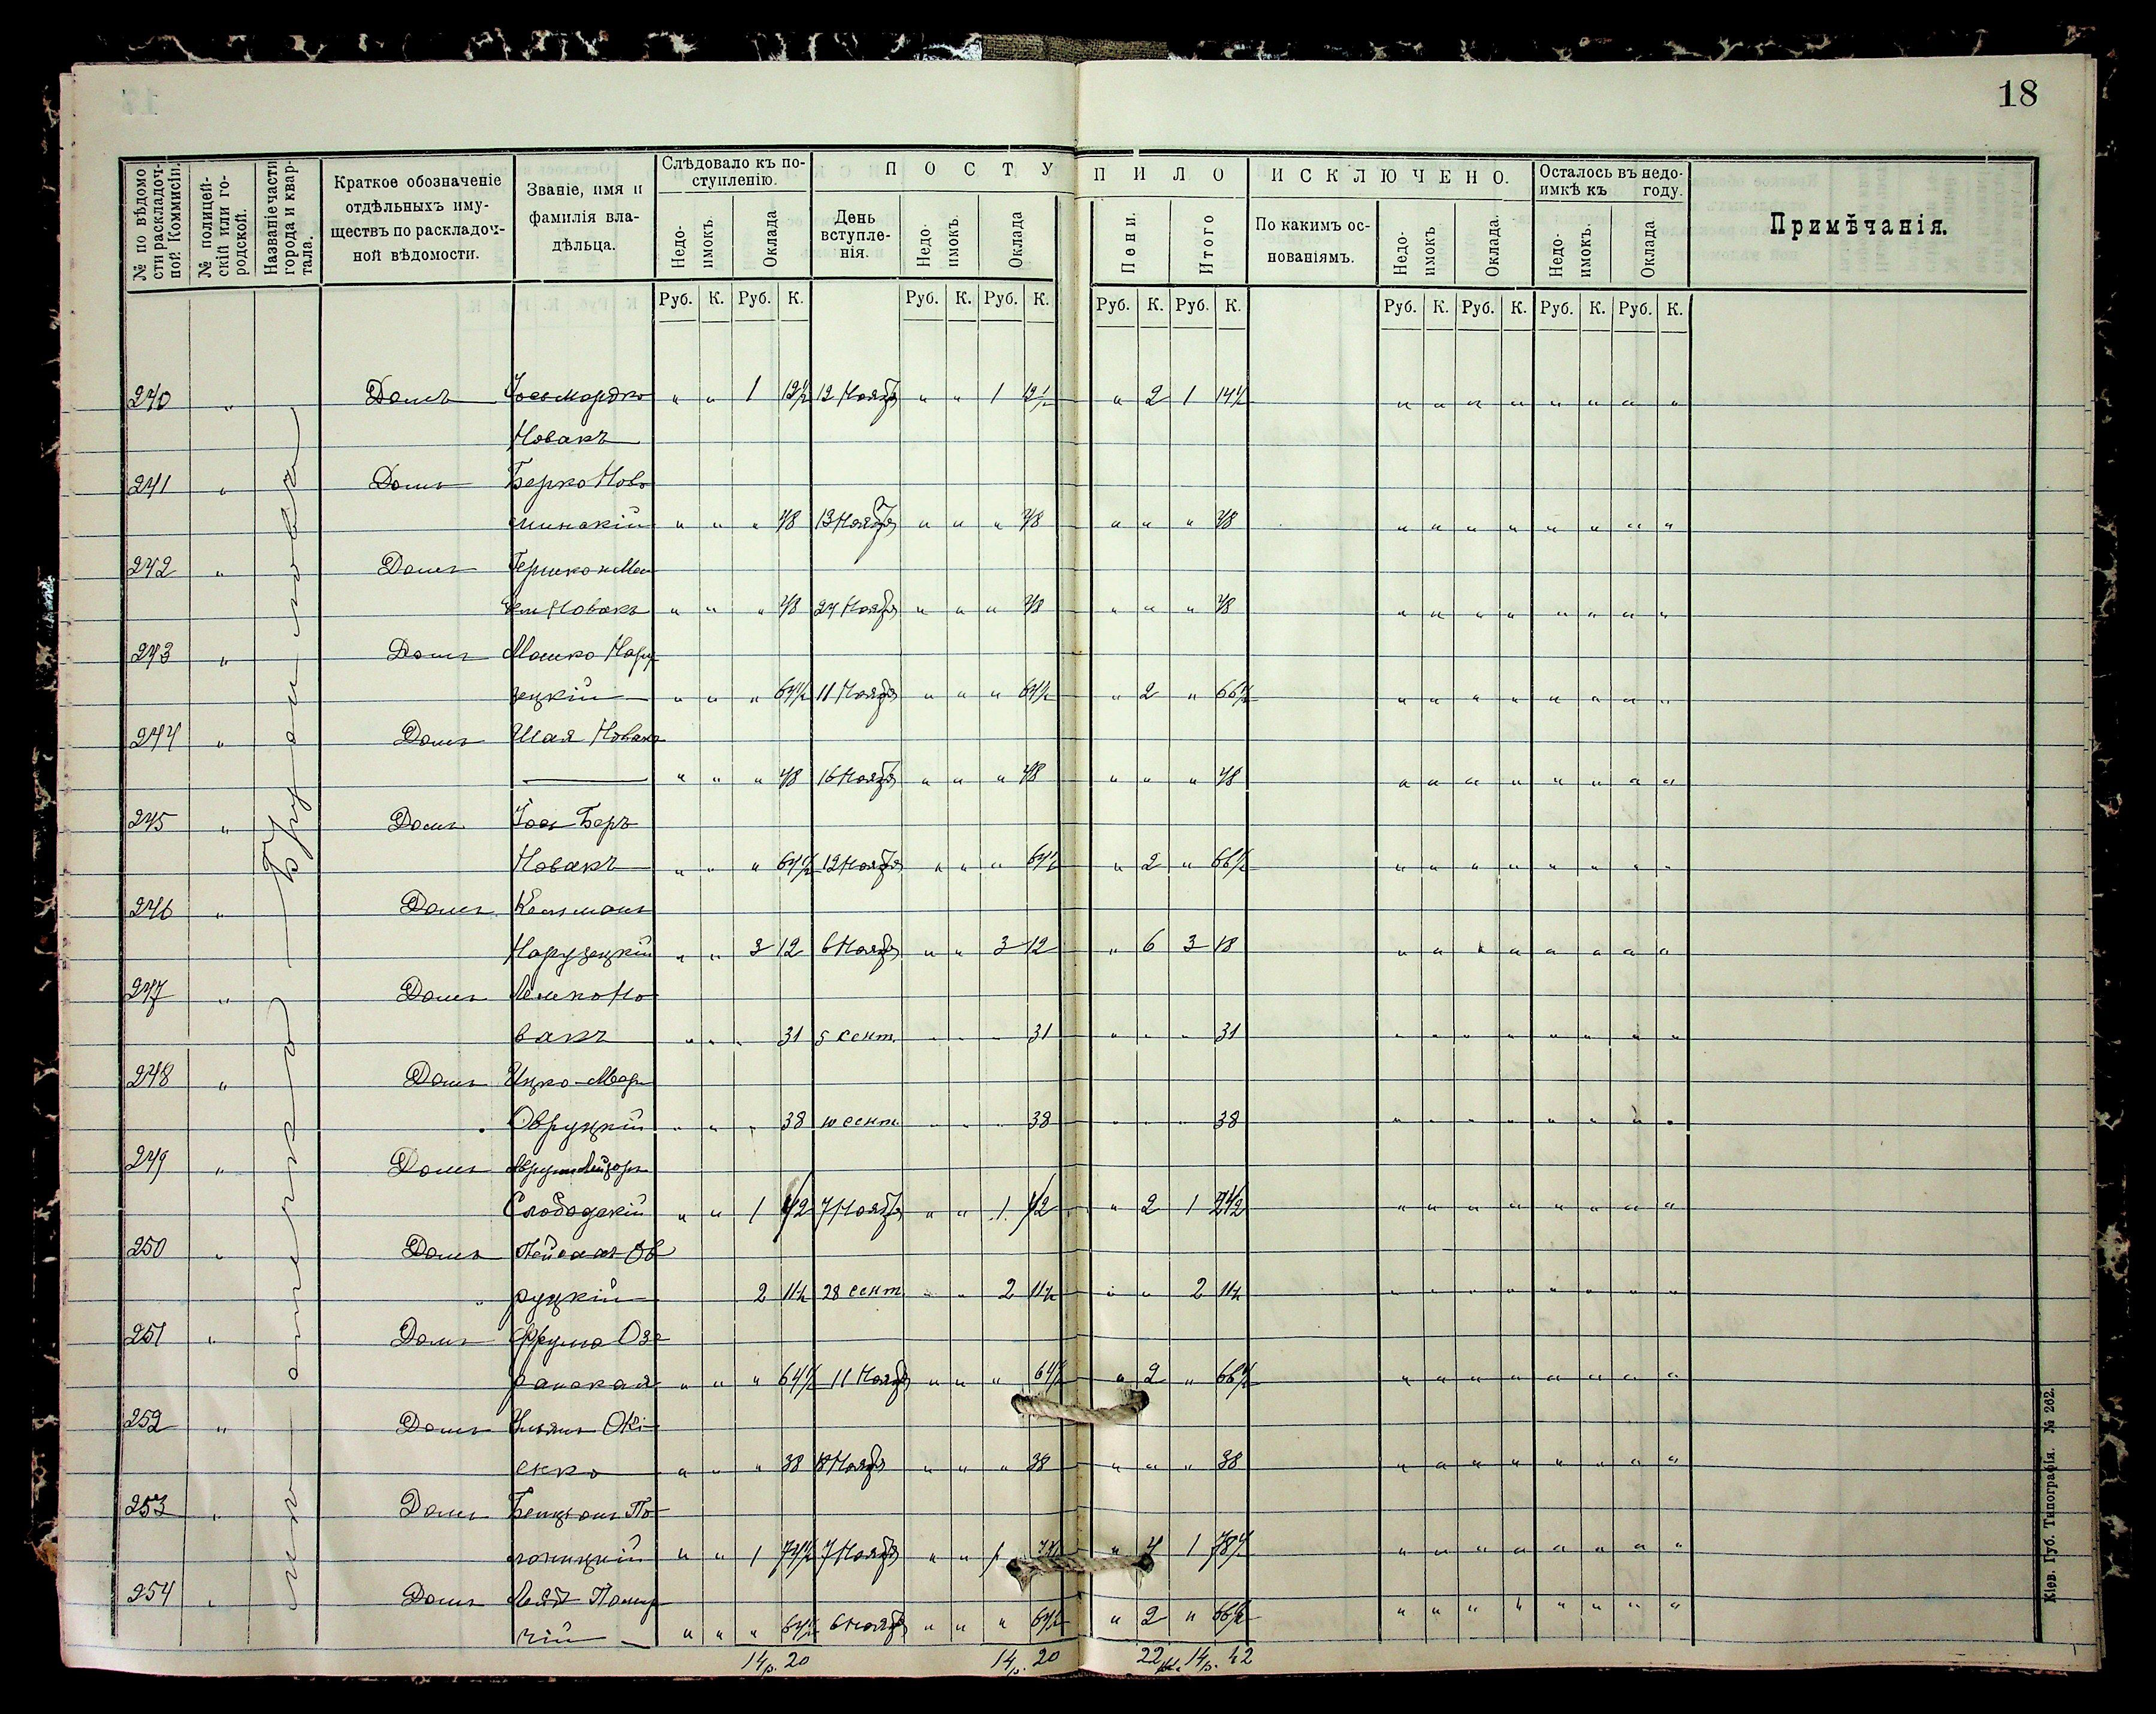 18
№ по вѣдомости раскладочной Коммисіи.
№ полицейскій или городской.
Названіе части города и квартала.
Краткое обозначеніе отдѣльныхъ имуществъ по раскладочной вѣдомости.
Званіе, имя и фамилія владѣльца.
Слѣдовало къ поступленію.
Недоимокъ. Оклада
П О С Т У П И Л О
День вступленія. Недоимокъ. Оклада Пени. Итого
И С К Л Ю Ч Е Н О.
По какимъ основаніямъ. Недоимокъ Оклада.
Осталось въ недоимкѣ къ году.
Недоимокъ. Оклада
Примѣчанія.
Руб. К. Руб. К. Руб. К. Руб. К. Руб. К. Руб. К. Руб. К. Руб. К. Руб. К. Руб. К.
240 " Домъ " " 1 12½ 12 Ноября " " 1 12½ " 2 1 14½ " " " " " " " "
Новакъ
241 " Домъ Берко Ново
минскій " " " 48 13 Ноября " " " 48 " " " 48 " " " " " " " "
242 " Домъ Гершко и
Новакъ " " " 48 24 Ноября " " " 48 " " " 48 " " " " " " " "
243 " Домъ Мошко Нару
зецкій " " " 64½ 11 Ноября " " " 64½ " 2 " 66½ " " " " " " " "
244 " Домъ Шая Новакъ
" " " 48 16 Ноября " " " 48 " " " 48 " " " " " " " "
245 " Домъ Іось Беръ
Новакъ " " " 64½ 12 Ноября " " " 64½ " 2 " 66½ " " " " " " " "
246 " Домъ
Нарузецкій " " 3 12 6 Ноября " " 3 12 " 6 3 18 " " " " " " " "
247 " Домъ Лейко Но
вакъ " " " 31 5 сент. " " " 31 " " " 31 " " " " " " " "
248 " Домъ Ицко-Мор.
Овруцкій " " " 38 10 сент. " " " 38 " " " 38 " " " " " " " "
249 " Домъ Аврумъ Лейзоръ
Слободскій " " 1 7 Ноября " " 1 " 2 1 " " " " " " " "
250 " Домъ Пейсахъ Ов
руцкій 2 11½ 28 сент. " " 2 11½ " " 2 11½ " " " " " " " "
251 " Домъ Фрума Озе
ранская " " " 64½ 11 Ноября " " " 64½ " 2 " 66½ " " " " " " " "
252 " Домъ
енко " " " 38 18 Ноября " " " 38 " " " 38 " " " " " " " "
253 " Домъ Бенціонъ По
лоницкій " " 1 74½ 7 Ноября " " 1 " 4 1 78½ " " " " " " " "
254 " Домъ
чій " " " 64½ 6 Ноября " " " 64½ " 2 " 66½ " " " " " " " "
14 р. 20 14 р. 20 22 14 р. 42
Кіев. Губ. Типографія. № 262.